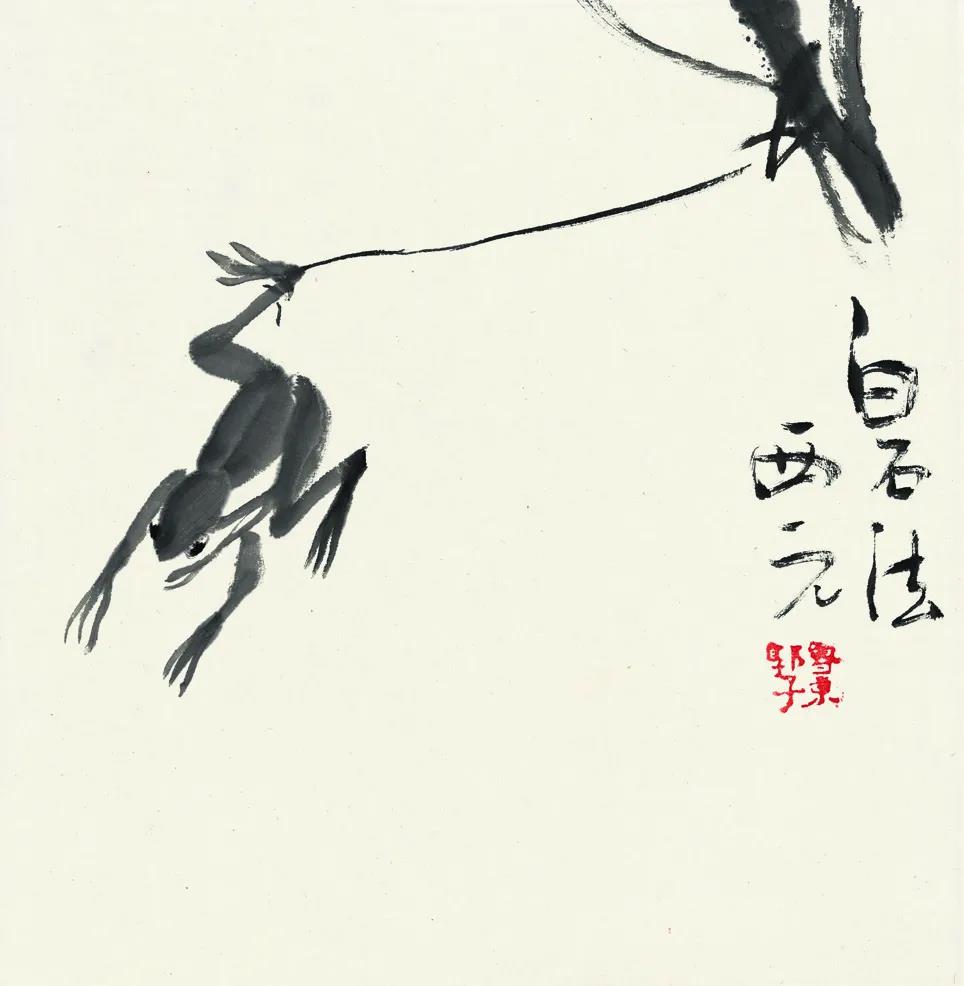 白石法
西元
粤東
野子